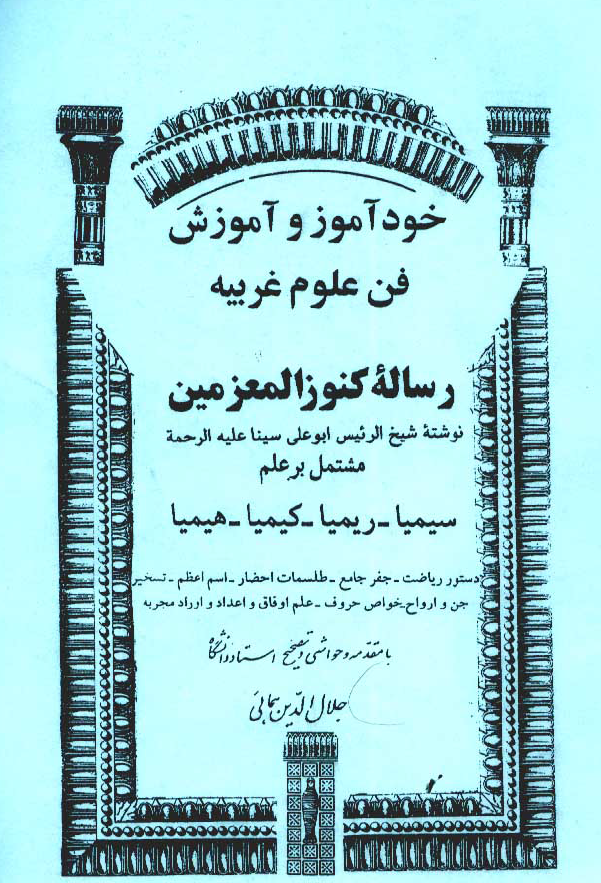 خودآموز و آموزش
فن علوم غریبه
رسالهٔ کنوزالمعزمین
نوشتهٔ شیخ الرئیس ابوعلی سینا علیه الرحمة
مشتمل بر علم
سیمیا - ریمیا - کیمیا - هیمیا
دستور ریاضت - جفر جامع - طلسمات احضار - اسم اعظم - تسخیر
جن و ارواح - خواص حروف - علم اوفاق و اعداد و اوراد مجربه
با مقدمه و حواشی و تصحیح استاد دانشگاه
جلال الدین همائی